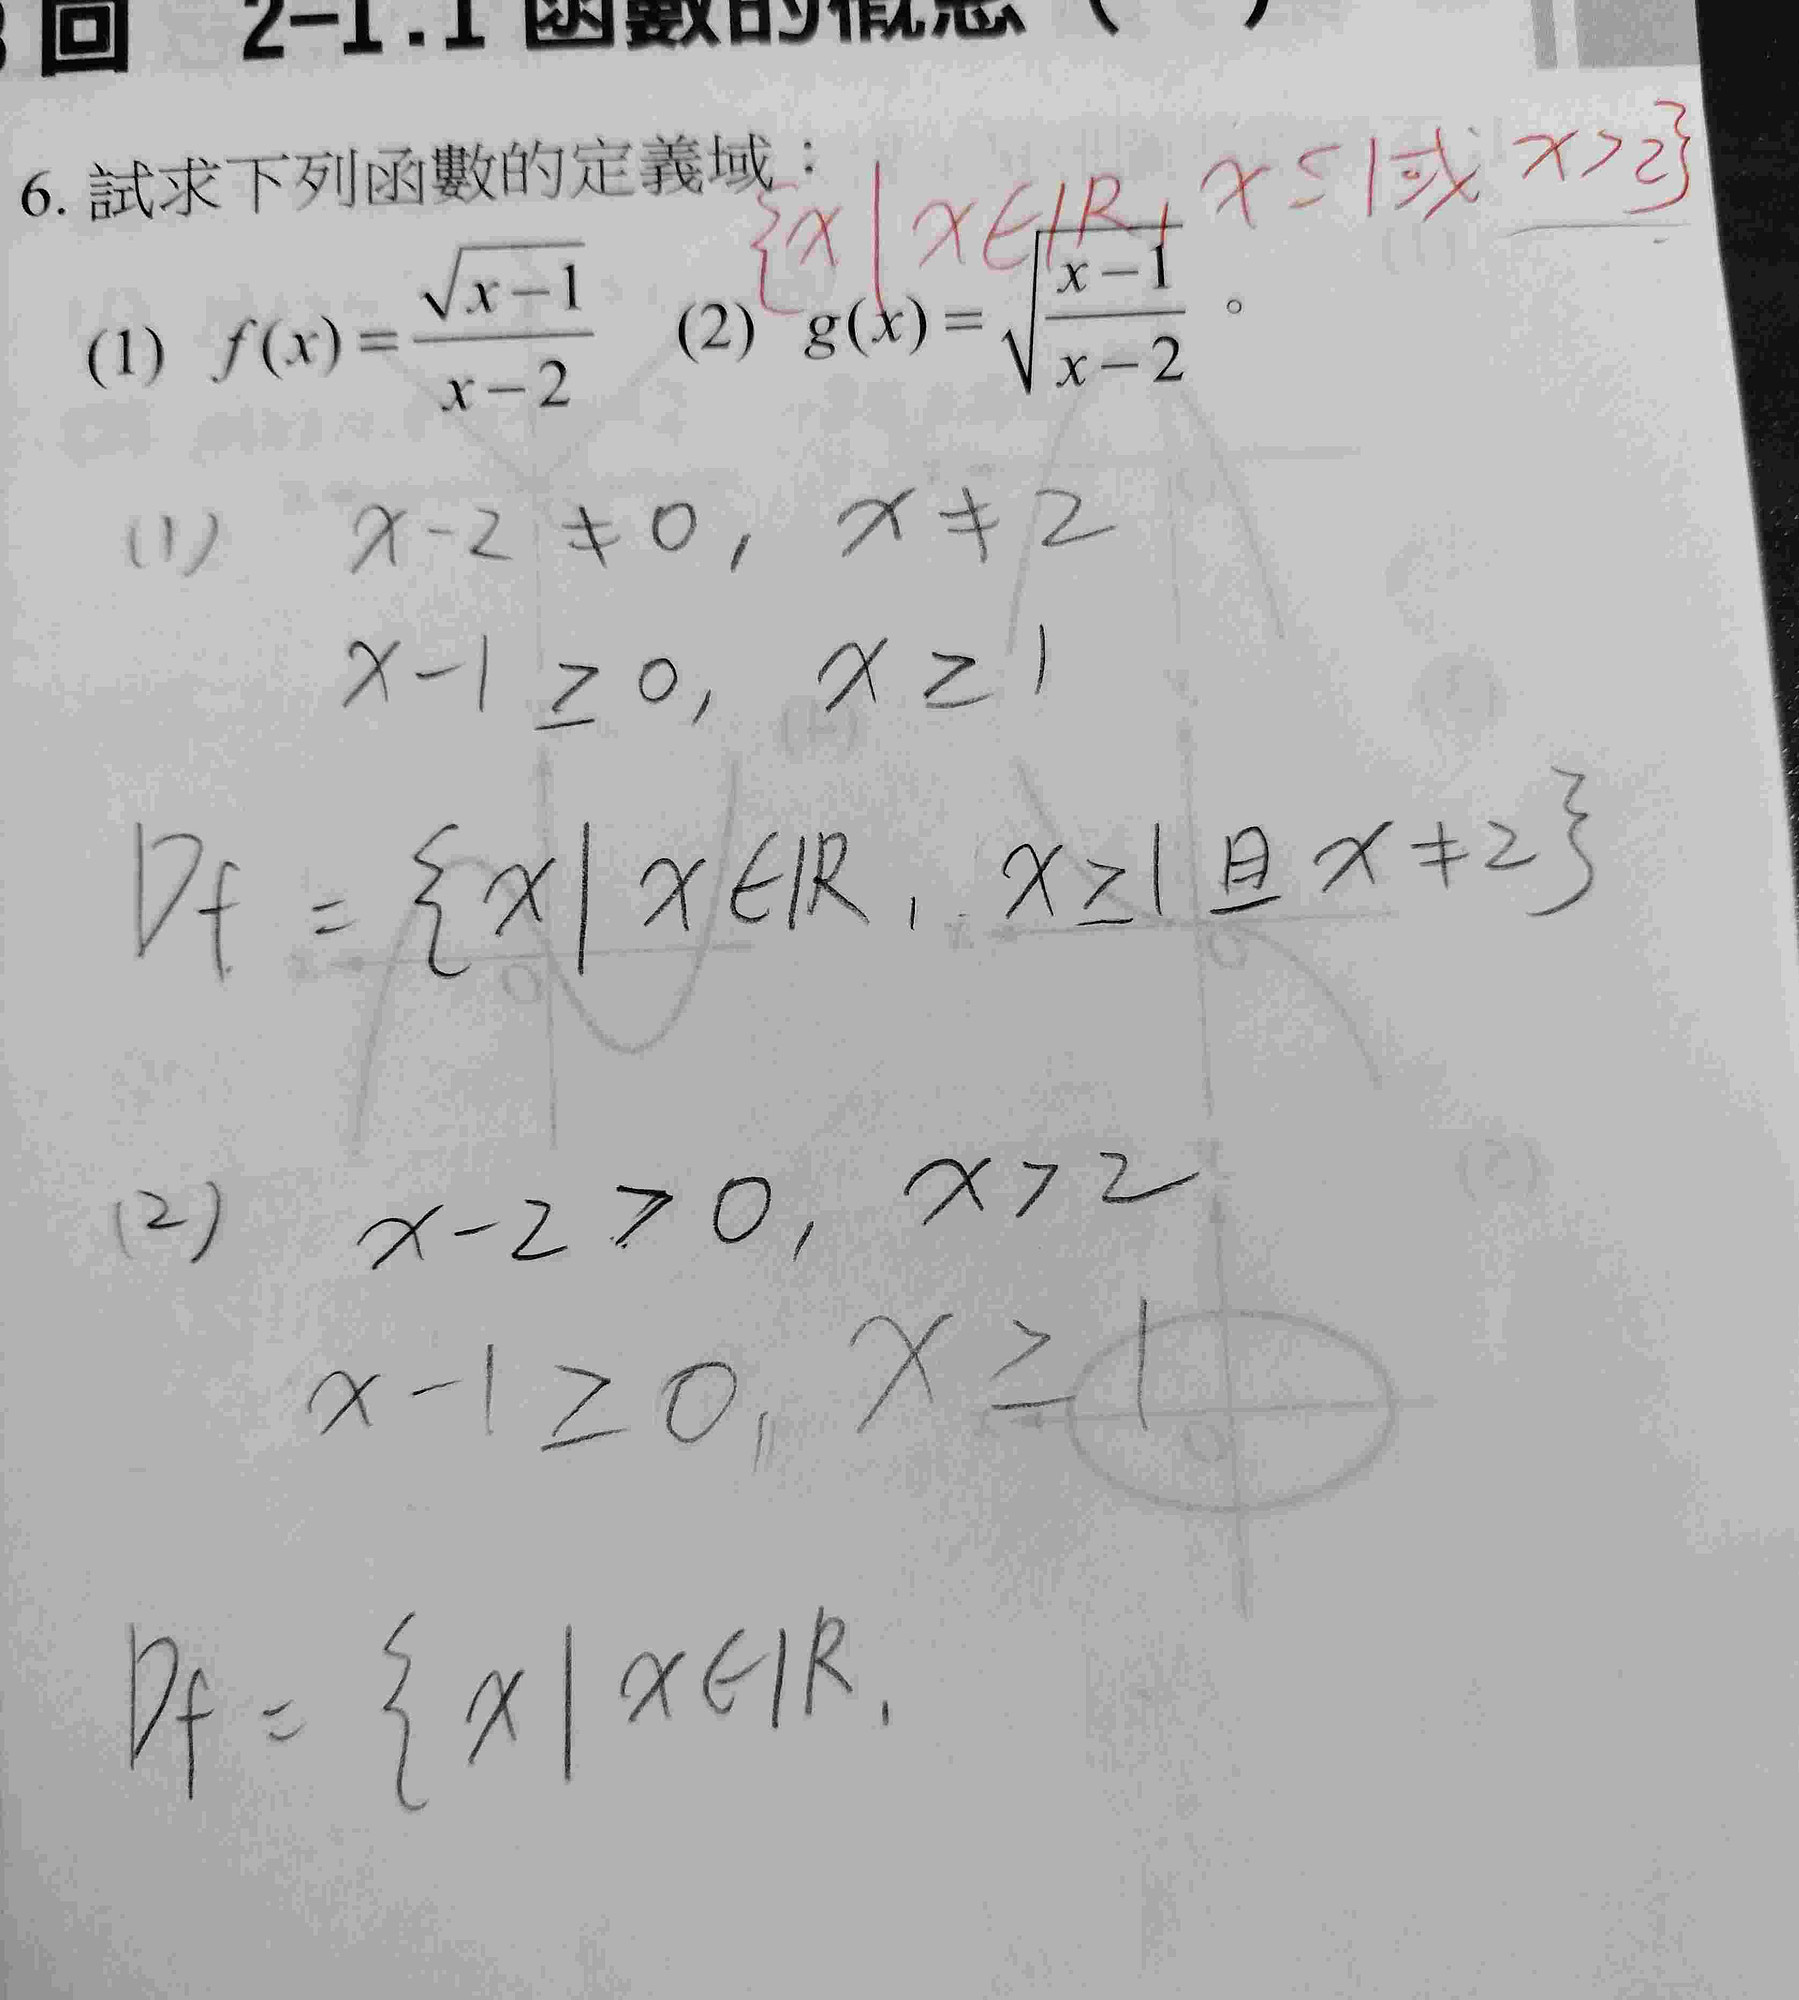 回 2-1.1 函數的概念(
6. 試求下列函數的定義域：
{x | x∈ℝ, x≤1或 x>2}
(1) f(x)=√(x-1)/(x-2) (2) g(x)=√((x-1)/(x-2))。
(1) x-2≠0, x≠2
x-1≥0, x≥1
Df = {x | x∈ℝ, x≥1且x≠2}
(2) x-2>0, x>2
x-1≥0, x≥1
Df = {x | x∈ℝ,